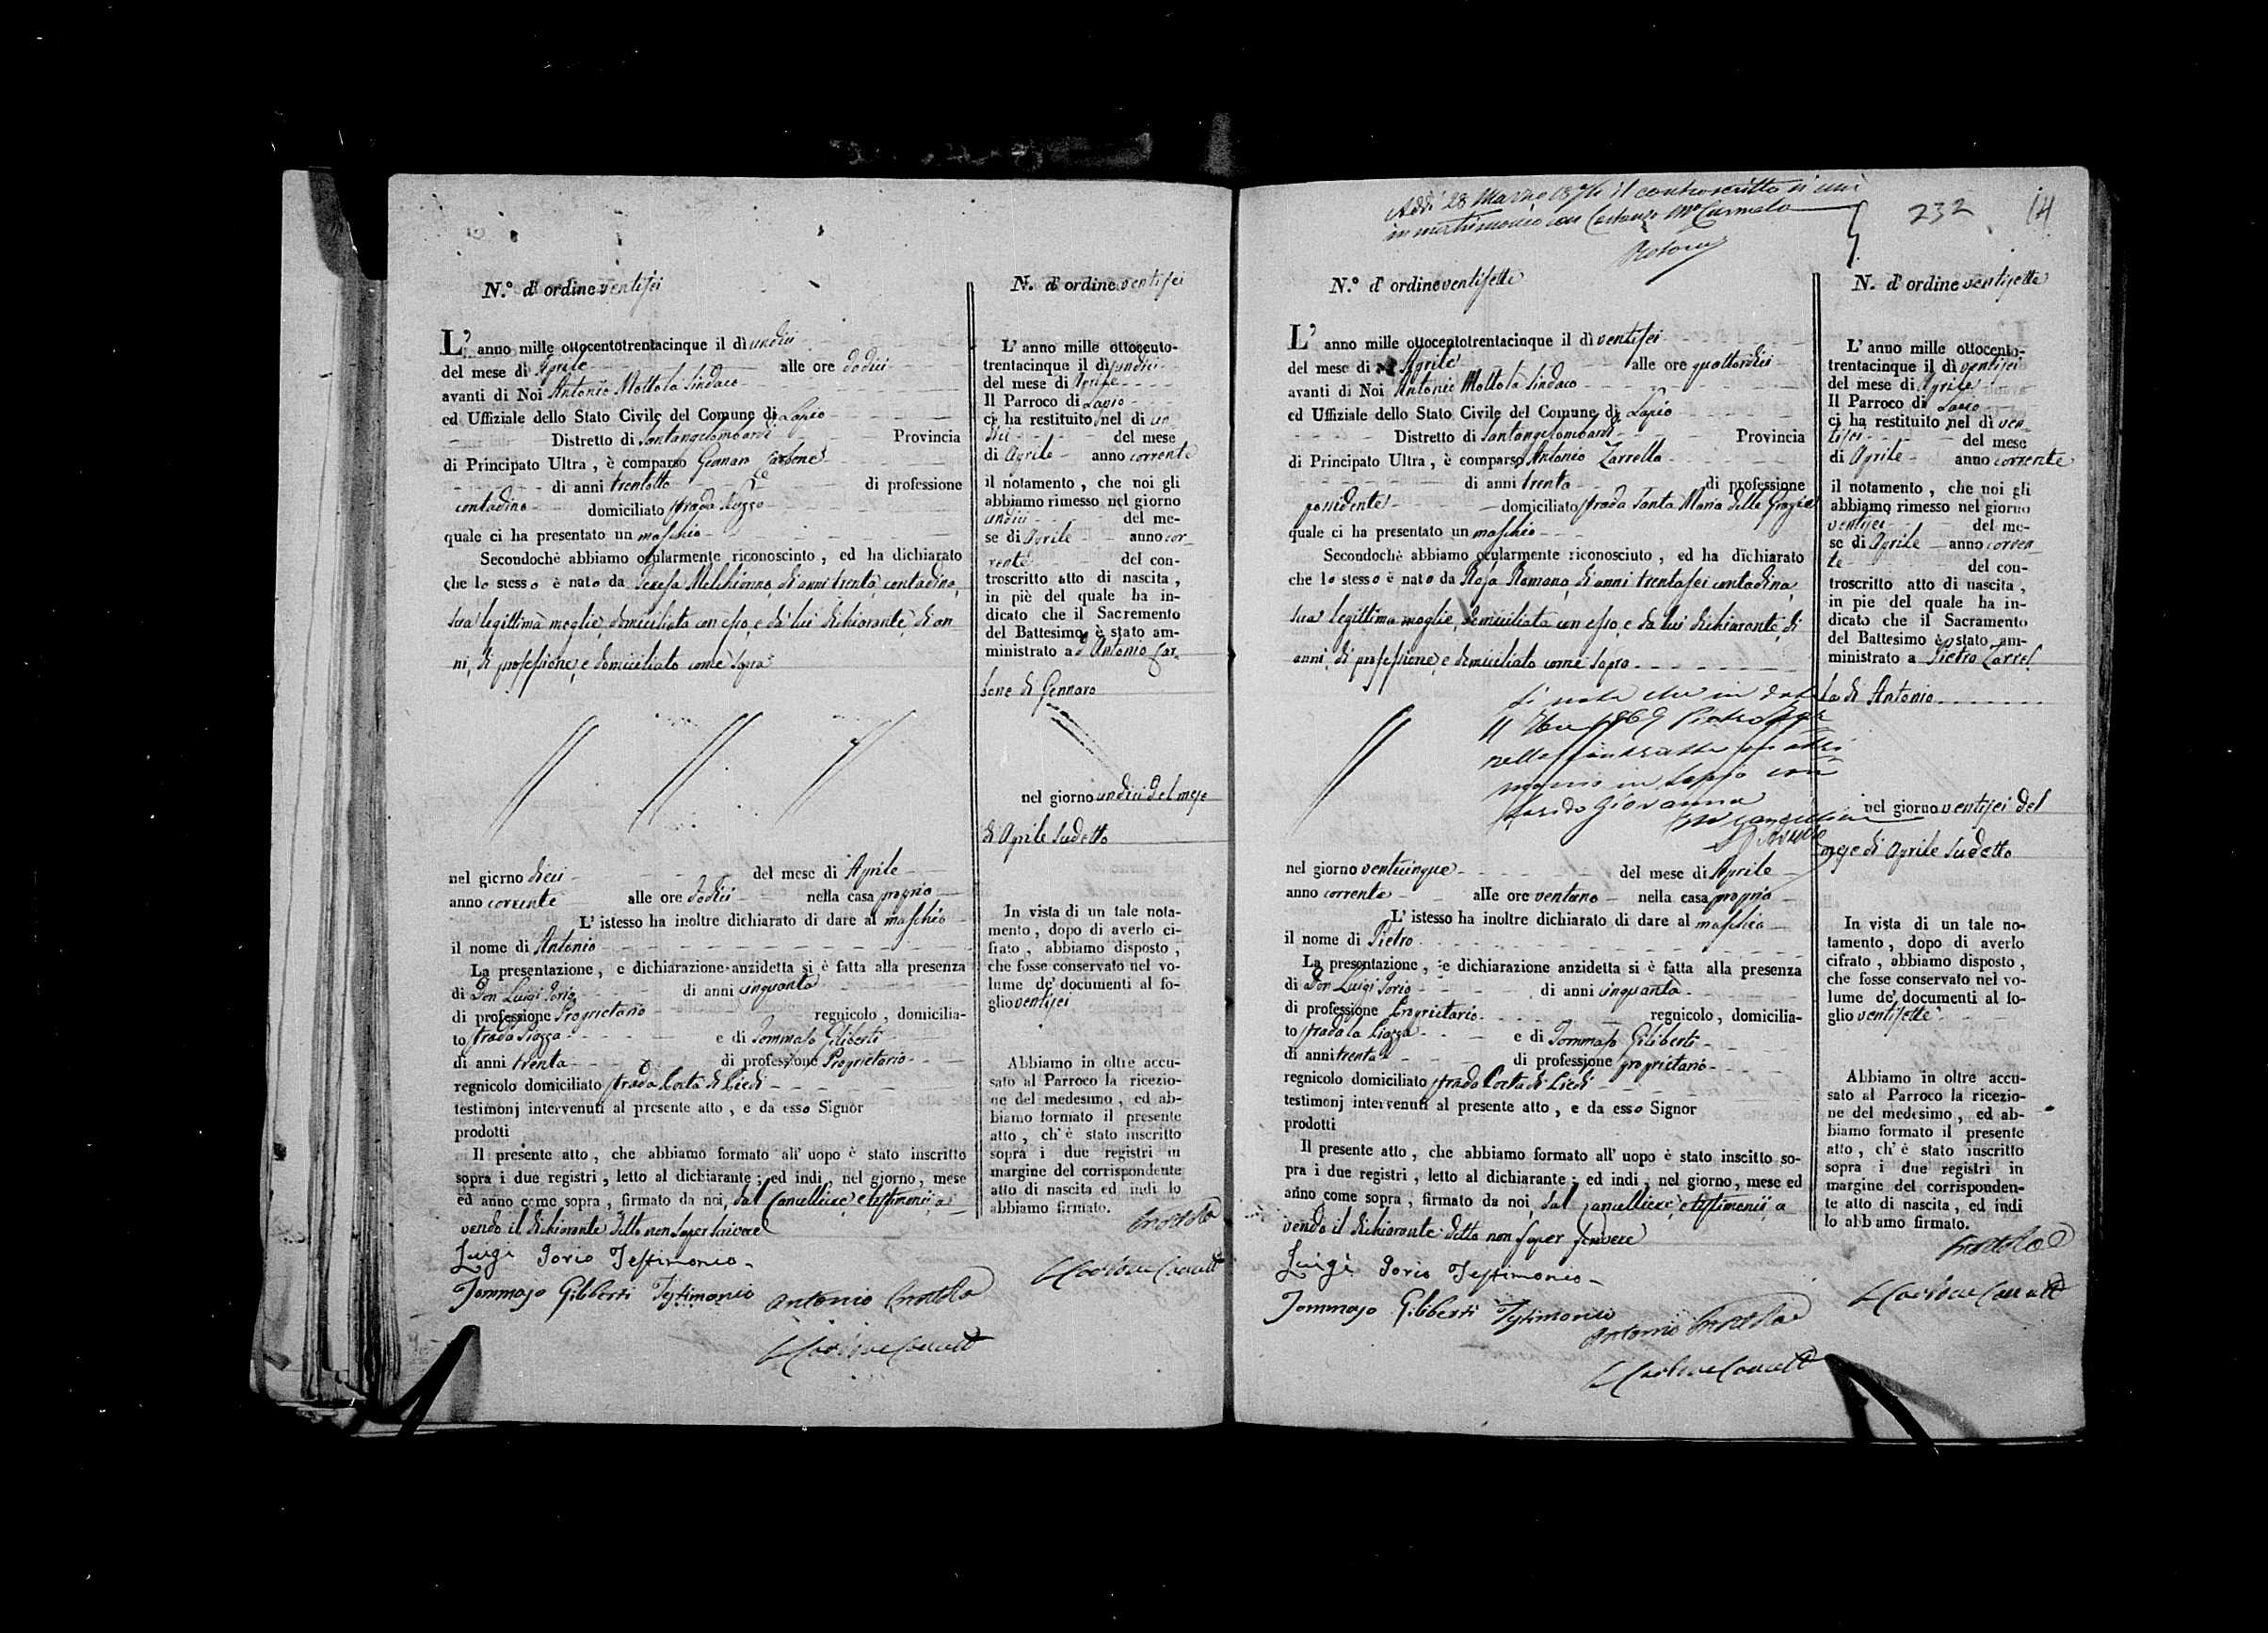 N.º d' ordine ventisei
L' anno mille ottocentotrentacinque il dì undici
del mese di Aprile alle ore dodici
avanti di Noi Antonio Mottola Sindaco
ed Uffiziale dello Stato Civile del Comune di Lapio
Distretto di Santangelombardi Provincia
di Principato Ultra, è comparso Gennaro Carbone
di anni trentotto di professione
contadino domiciliato strada
quale ci ha presentato un maschio
Secondochè abbiamo ocularmente riconosciuto, ed ha dichiarato
che lo stesso è nato da Teresa Melchionno, di anni trenta, contadina,
sua legittima moglie, domiciliata con esso, e da lui dichiarante, di an
ni, di professione, e domiciliato come sopra
nel giorno dieci del mese di Aprile
anno corrente alle ore dodici nella casa propria
L' istesso ha inoltre dichiarato di dare al maschio
il nome di Antonio
La presentazione, e dichiarazione anzidetta si è fatta alla presenza
di Don Luigi Iorio di anni cinquanta
di professione Proprietario regnicolo, domicilia-
to strada Piazza e di Tommaso Giliberti
di anni trenta di professione Proprietario
regnicolo domiciliato strada Costa di Piedi
testimonj intervenuti al presente atto, e da esso Signor
prodotti
Il presente atto, che abbiamo formato all' uopo è stato inscritto
sopra i due registri, letto al dichiarante, ed indi, nel giorno, mese
ed anno come sopra, firmato da noi, dal Cancelliere, e testimonii, a-
vendo il dichiarante detto non saper scrivere
Luigi Iorio Testimonio
Tommaso Giliberti Testimonio Antonio Mottola
N. d' ordine ventisei
L' anno mille ottocento-
trentacinque il dì undici
del mese di Aprile
Il Parroco di Lapio
ci ha restituito nel dì un
dici del mese
di Aprile anno corrente
il notamento, che noi gli
abbiamo rimesso nel giorno
undici del me-
se di Aprile anno cor-
rente del con-
troscritto atto di nascita,
in piè del quale ha in-
dicato che il Sacremento
del Battesimo è stato am-
ministrato a Antonio Car-
bone di Gennaro
nel giorno undici del mese
di Aprile sudetto
In vista di un tale nota-
mento, dopo di averlo ci-
frato, abbiamo disposto,
che fosse conservato nel vo-
lume de' documenti al fo-
glio ventisei
Abbiamo in oltre accu-
sato al Parroco la ricezio-
ne del medesimo, ed ab-
biamo formato il presente
atto, ch' è stato inscritto
sopra i due registri in
margine del corrispondente
atto di nascita ed indi lo
abbiamo firmato.
Mottola
Addì 28 Marzo il controscritto si unì
in matrimonio con Mª Carmela
232 14
N.º d' ordine ventisette
L' anno mille ottocentotrentacinque il dì ventisei
del mese di Aprile alle ore quattordici
avanti di Noi Antonio Mottola Sindaco
ed Uffiziale dello Stato Civile del Comune di Lapio
Distretto di Santangelombardi Provincia
di Principato Ultra, è comparso Antonio Zarrella
di anni trenta di professione
possidente domiciliato strada Santa Maria delle Grazie
quale ci ha presentato un maschio
Secondochè abbiamo ocularmente riconosciuto, ed ha dichiarato
che lo stesso è nato da Rosa Romano, di anni trentasei contadina,
sua legittima moglie, domiciliata con esso, e da lui dichiarante, di
anni, di professione, e domiciliato come sopra
si nota che in data
11 1869 Pietro Zar
rella
in Lapio con
Giovanna
nel giorno venticinque del mese di Aprile
anno corrente alle ore ventuno nella casa propria
L' istesso ha inoltre dichiarato di dare al maschio
il nome di Pietro
La presentazione, e dichiarazione anzidetta si è fatta alla presenza
di Don Luigi Iorio di anni cinquanta
di professione Proprietario regnicolo, domicilia-
to strada la Piazza e di Tommaso Giliberti
di anni trenta di professione proprietario
regnicolo domiciliato strada Costa di Piedi
testimonj intervenuti al presente atto, e da esso Signor
prodotti
Il presente atto, che abbiamo formato all' uopo è stato inscitto so-
pra i due registri, letto al dichiarante, ed indi, nel giorno, mese ed
anno come sopra, firmato da noi, dal cancelliere, e testimonii a
vendo il dichiarante detto non saper scrivere
Luigi Iorio Testimonio
Tommaso Giliberti Testimonio
Antonio Mottola
N. d' ordine ventisette
L' anno mille ottocento-
trentacinque il dì ventisei
del mese di Aprile
Il Parroco di Lapio
ci ha restituito nel dì ven-
tisei del mese
di Aprile anno corrente
il notamento, che noi gli
abbiamo rimesso nel giorno
ventisei del me-
se di Aprile anno corren
te del con-
troscritto atto di nascita,
in pie del quale ha in-
dicato che il Sacramento
del Battesimo è stato am-
ministrato a Pietro Zarrel
la di Antonio
nel giorno ventisei del
mese di Aprile sudetto
In vista di un tale no-
tamento, dopo di averlo
cifrato, abbiamo disposto,
che fosse conservato nel vo-
lume de' documenti al fo-
glio ventisette
Abbiamo in oltre accu-
sato al Parroco la ricezio-
ne del medesimo, ed ab-
biamo formato il presente
atto, ch' è stato inscritto
sopra i due registri in
margine del corrisponden-
te atto di nascita, ed indi
lo abbiamo firmato.
Mottola